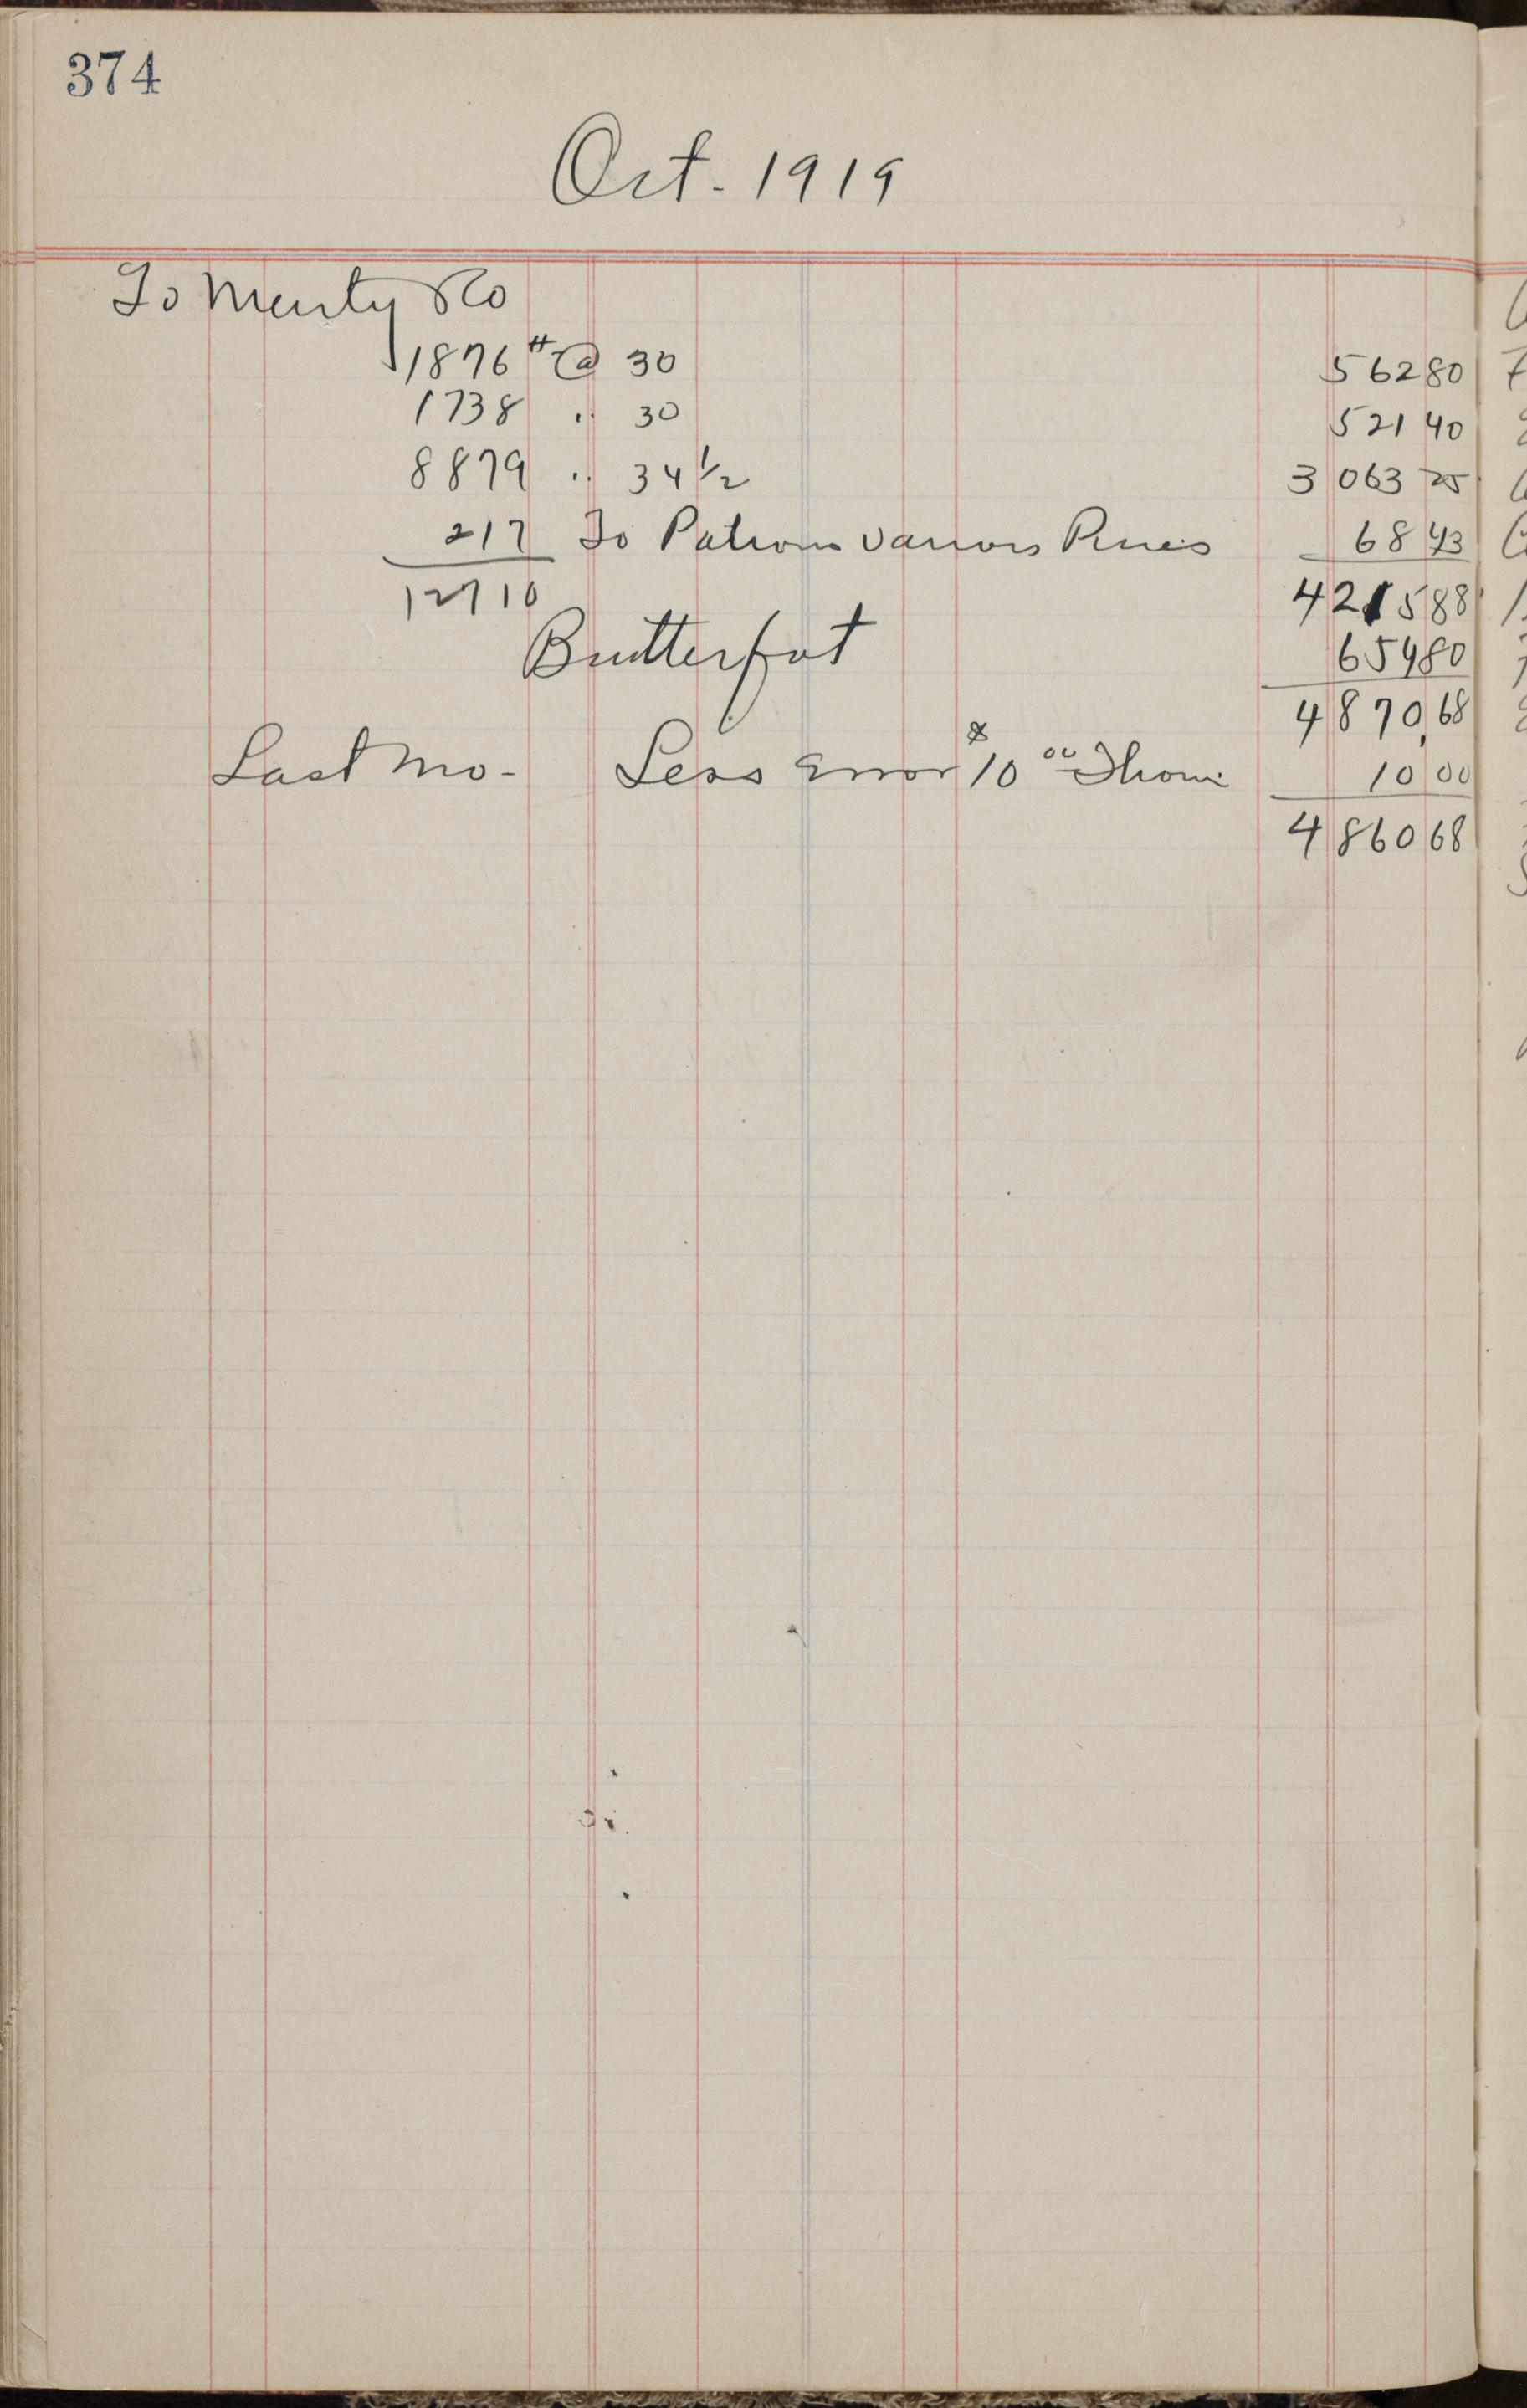 374
Oct. 1919
To Marty & Co
1876 # @ 30 562 80
1738 " 30 521 40
8879 " 34 1/2 3 063 25
217 To Patrons Various Prices 68 43
12710 4215 88
Butterfat 654 80
4 870.68
Last Mo - Less Error $10 00 10 00
4 860 68